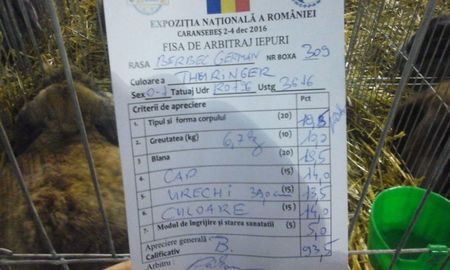 EXPOZIȚIA NAȚIONALĂ A ROMÂNIEI
CARANSEBEȘ 2-4 dec 2016
FISA DE ARBITRAJ IEPURI
RASA BERBEC GERMAN NR BOXA 309
Culoare a THURINGER
Sex 0-1 Tatuaj Udr Ustg 3616
Criterii de apreciere Pct
1. Tipul si forma corpului (20) 19,5
2. Greutatea (kg) (10)
3. Blana (20) 18,5
4. CAP (15) 14,0
5. URECHI (15) 13,5
6. CULOARE (15) 14,0
7. Modul de îngrijire și starea sanatatii (5) 5,0
Apreciere generală
Calificativ B 93,5
Arbitru :